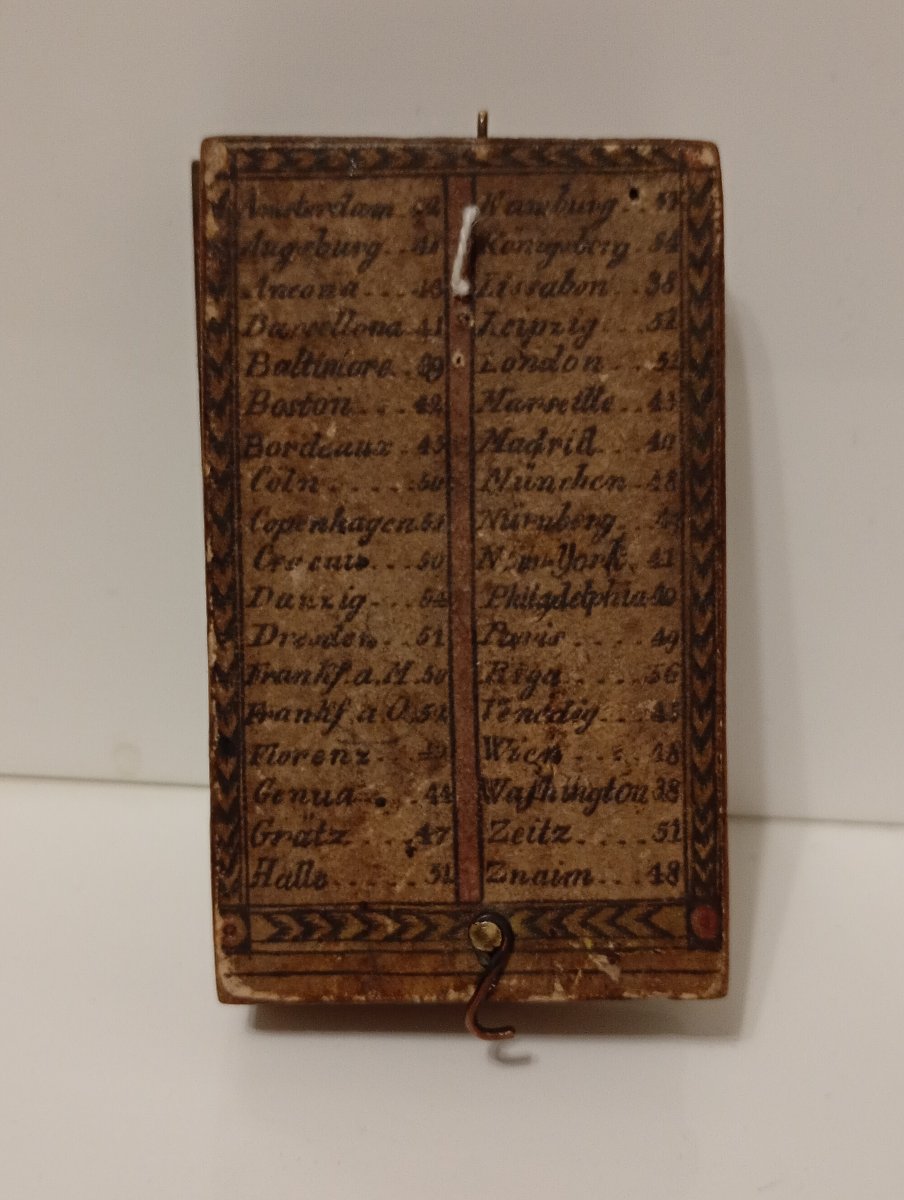 Amsterdam
Augsburg . . 48
Ancona . . . 43
Barcellona 41
Baltimore . . 39
Boston . . . 42
Bordeaux . 45
Cöln . . . . . 50
Copenhagen
. . . 50
Danzig . . . 54
Dresden . . 51
Frankf. a. M. 50
Frankf. a. O. 52
Florenz
Genua . . . 44
Grätz . . . 47
Halle . . . . . 51
Hamburg . . 51
Königsberg . 54
Lissabon . . 38
Leipzig . . . 51
London . . . 52
Marseille . . 43
Madrid . . . 40
München . 48
Nürnberg
New-York . 41
Philadelphia
Paris . . . . . 49
Riga . . . . . 56
Venedig . . . 45
Wien . . . . 48
Waſhington 38
Zeitz . . . . . 51
Znaim . . . 48